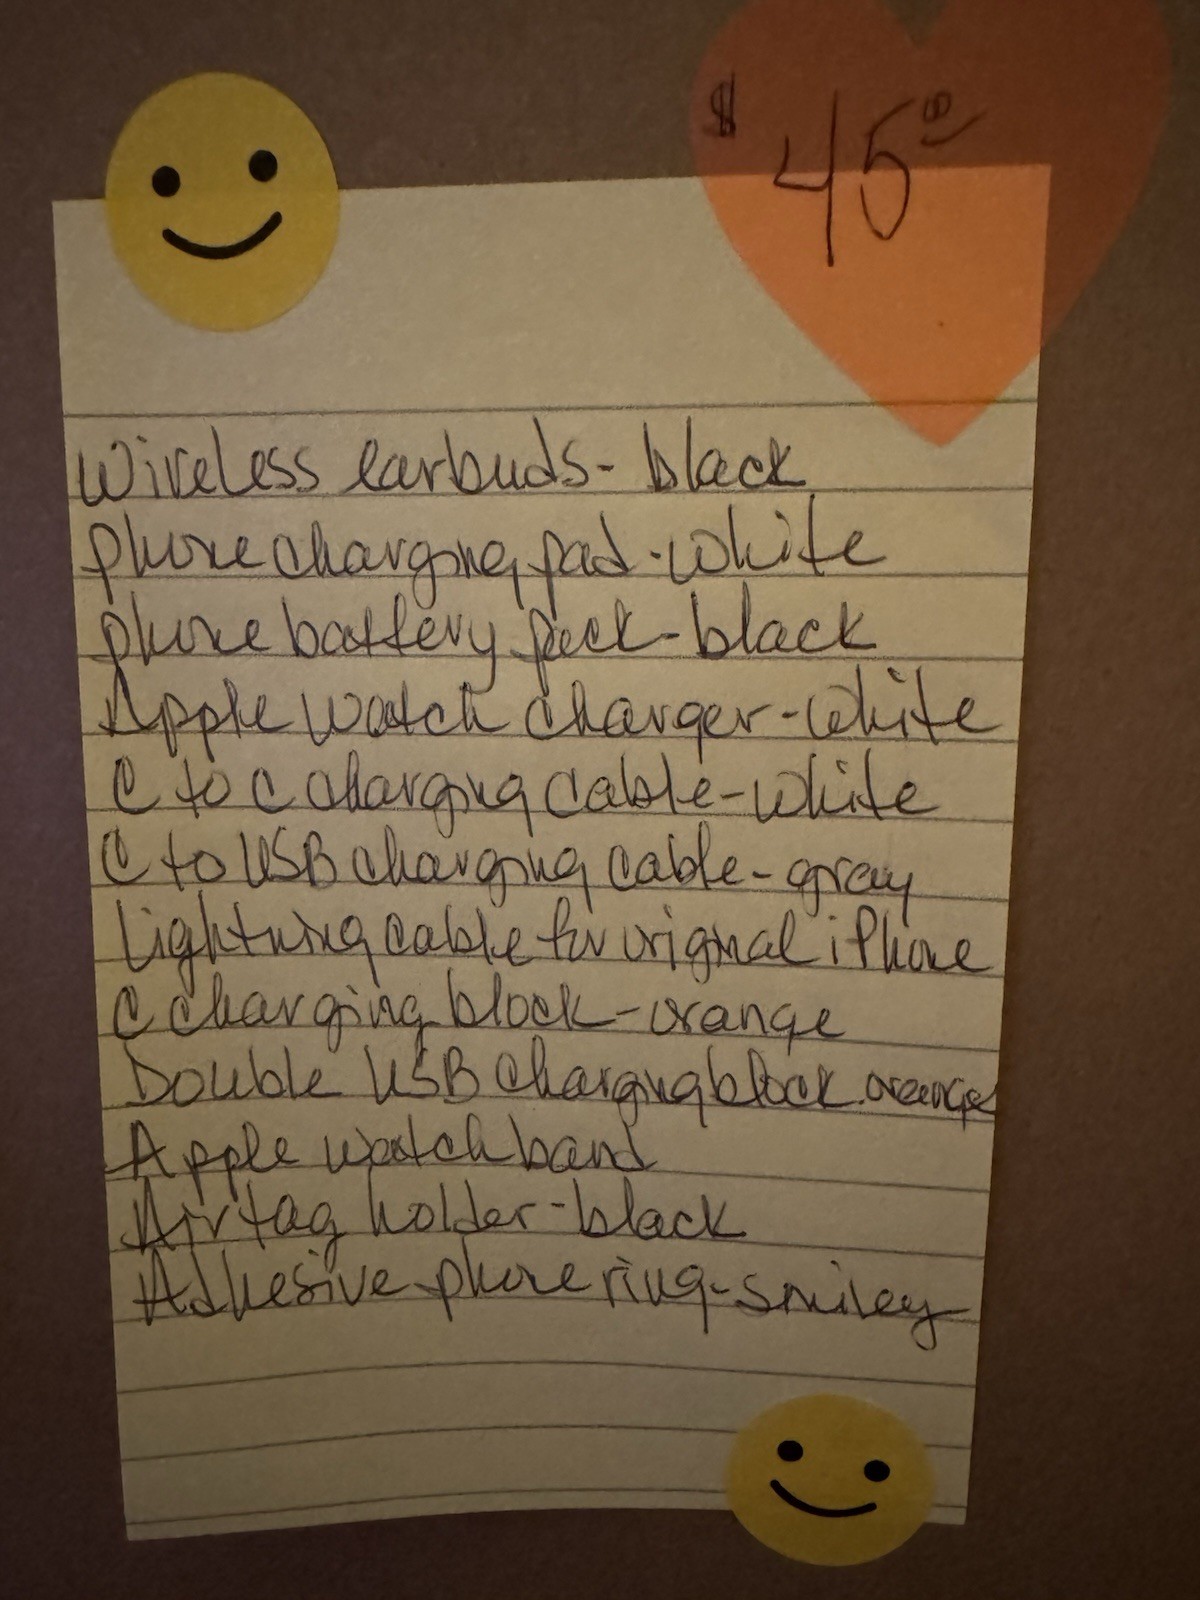 $45⁰⁰
Wireless earbuds - black
phone charging pad - white
phone battery pack - black
Apple Watch charger - white
C to C charging cable - white
C to USB charging cable - gray
Lightning cable for original iPhone
C charging block - orange
Double USB charging block - orange
Apple watch band
Airtag holder - black
Adhesive phone ring - smiley